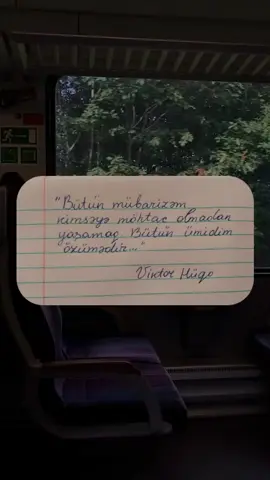 "Bütün mübarizəm
kimsəyə möhtac olmadan
yaşamaq. Bütün ümidim
özümədir..."
Viktor Hüqo